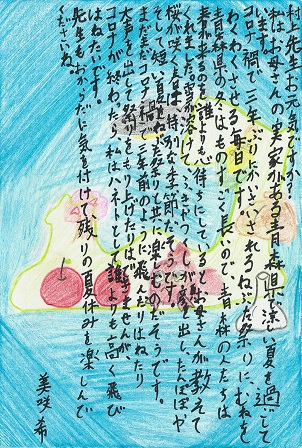 村上先生お元気ですか？
私はお母さんの実家がある青森県で涼しい夏を過ごして
います。コロナ禍で三年ぶりにかいさいされるねぶた祭りに、むねを
わくわくさせる毎日です。
青森県の冬はものすごく長いので、青森の人たちは
春が来るのを誰よりも心待ちにしているとお母さんが教えて
くれました。雪が溶けて、ふきのとうやつくしが顔を出し、たんぽぽや
桜が咲く春は特別な季節だそうです。
そして短い夏をねぶた祭りと共に楽しむのだそうです。
まだまだコロナ禍で三年前のように飛んだりはねたり
大声を出して祭りをもり上げたりはできませんが、
コロナが終わったら私はハネトとして誰よりも高く飛び
はねたいです。
先生もおからだに気を付けて、残りの夏休みを楽しんで
くださいね。
美咲希